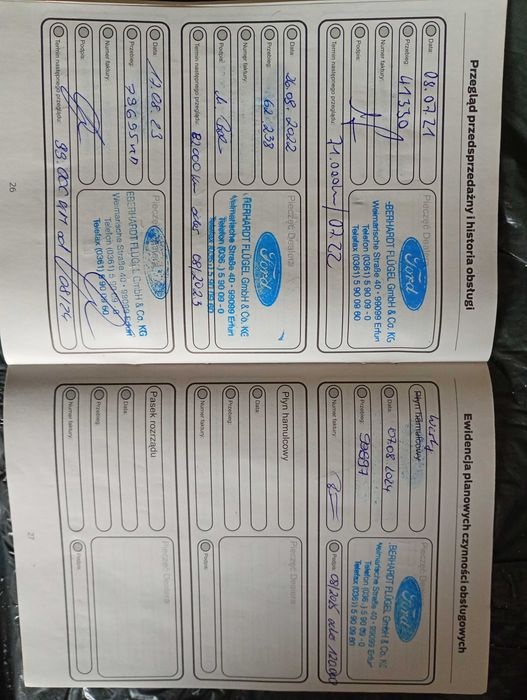 Przegląd przedsprzedażny i historia obsługi
Data:
08.07.21
Przebieg:
41330
Numer faktury:
Podpis:
Termin następnego przeglądu:
71.000km / 07.22
Pieczęć Dealera
Ford
EBERHARDT FLÜGEL GmbH & Co. KG
Weimarische Straße 40 • 99099 Erfurt
Telefon (0361) 5 90 09 - 0
Telefax (0361) 5 90 09 60
Data:
26.08.2022
Przebieg:
62.238
Numer faktury:
Podpis:
Termin następnego przeglądu:
82000 km oder 08/2023
Pieczęć Dealera
Ford
EBERHARDT FLÜGEL GmbH & Co. KG
Weimarische Straße 40 • 99099 Erfurt
Telefon (036 ) 5 90 09 - 0
Telefax (0361) 5 90 09 60
Data:
17.08.23
Przebieg:
79695
Numer faktury:
Podpis:
Termin następnego przeglądu:
99.000
Pieczęć Dealera
EBERHARDT FLÜGEL GmbH & Co. KG
Weimarische Straße 40 • 99099 Erfurt
Telefon (0361) 5 90 09 - 0
Telefax (0361) 5 90 09 60
26
Ewidencja planowych czynności obsługowych
Płyn hamulcowy
Data:
07.08.2024
Przebieg:
Numer faktury:
Podpis:
08/2025 oder 120.000
Pieczęć Dealera
Ford
EBERHARDT FLÜGEL GmbH & Co. KG
Weimarische Straße 40 • 99099 Erfurt
Telefon (036 ) 5 90 09 - 0
Telefax (0361) 5 90 09 60
Płyn hamulcowy
Data:
Przebieg:
Numer faktury:
Podpis:
Pieczęć Dealera
Pasek rozrządu
Data:
Przebieg:
Numer faktury:
Podpis:
Pieczęć Dealera
27